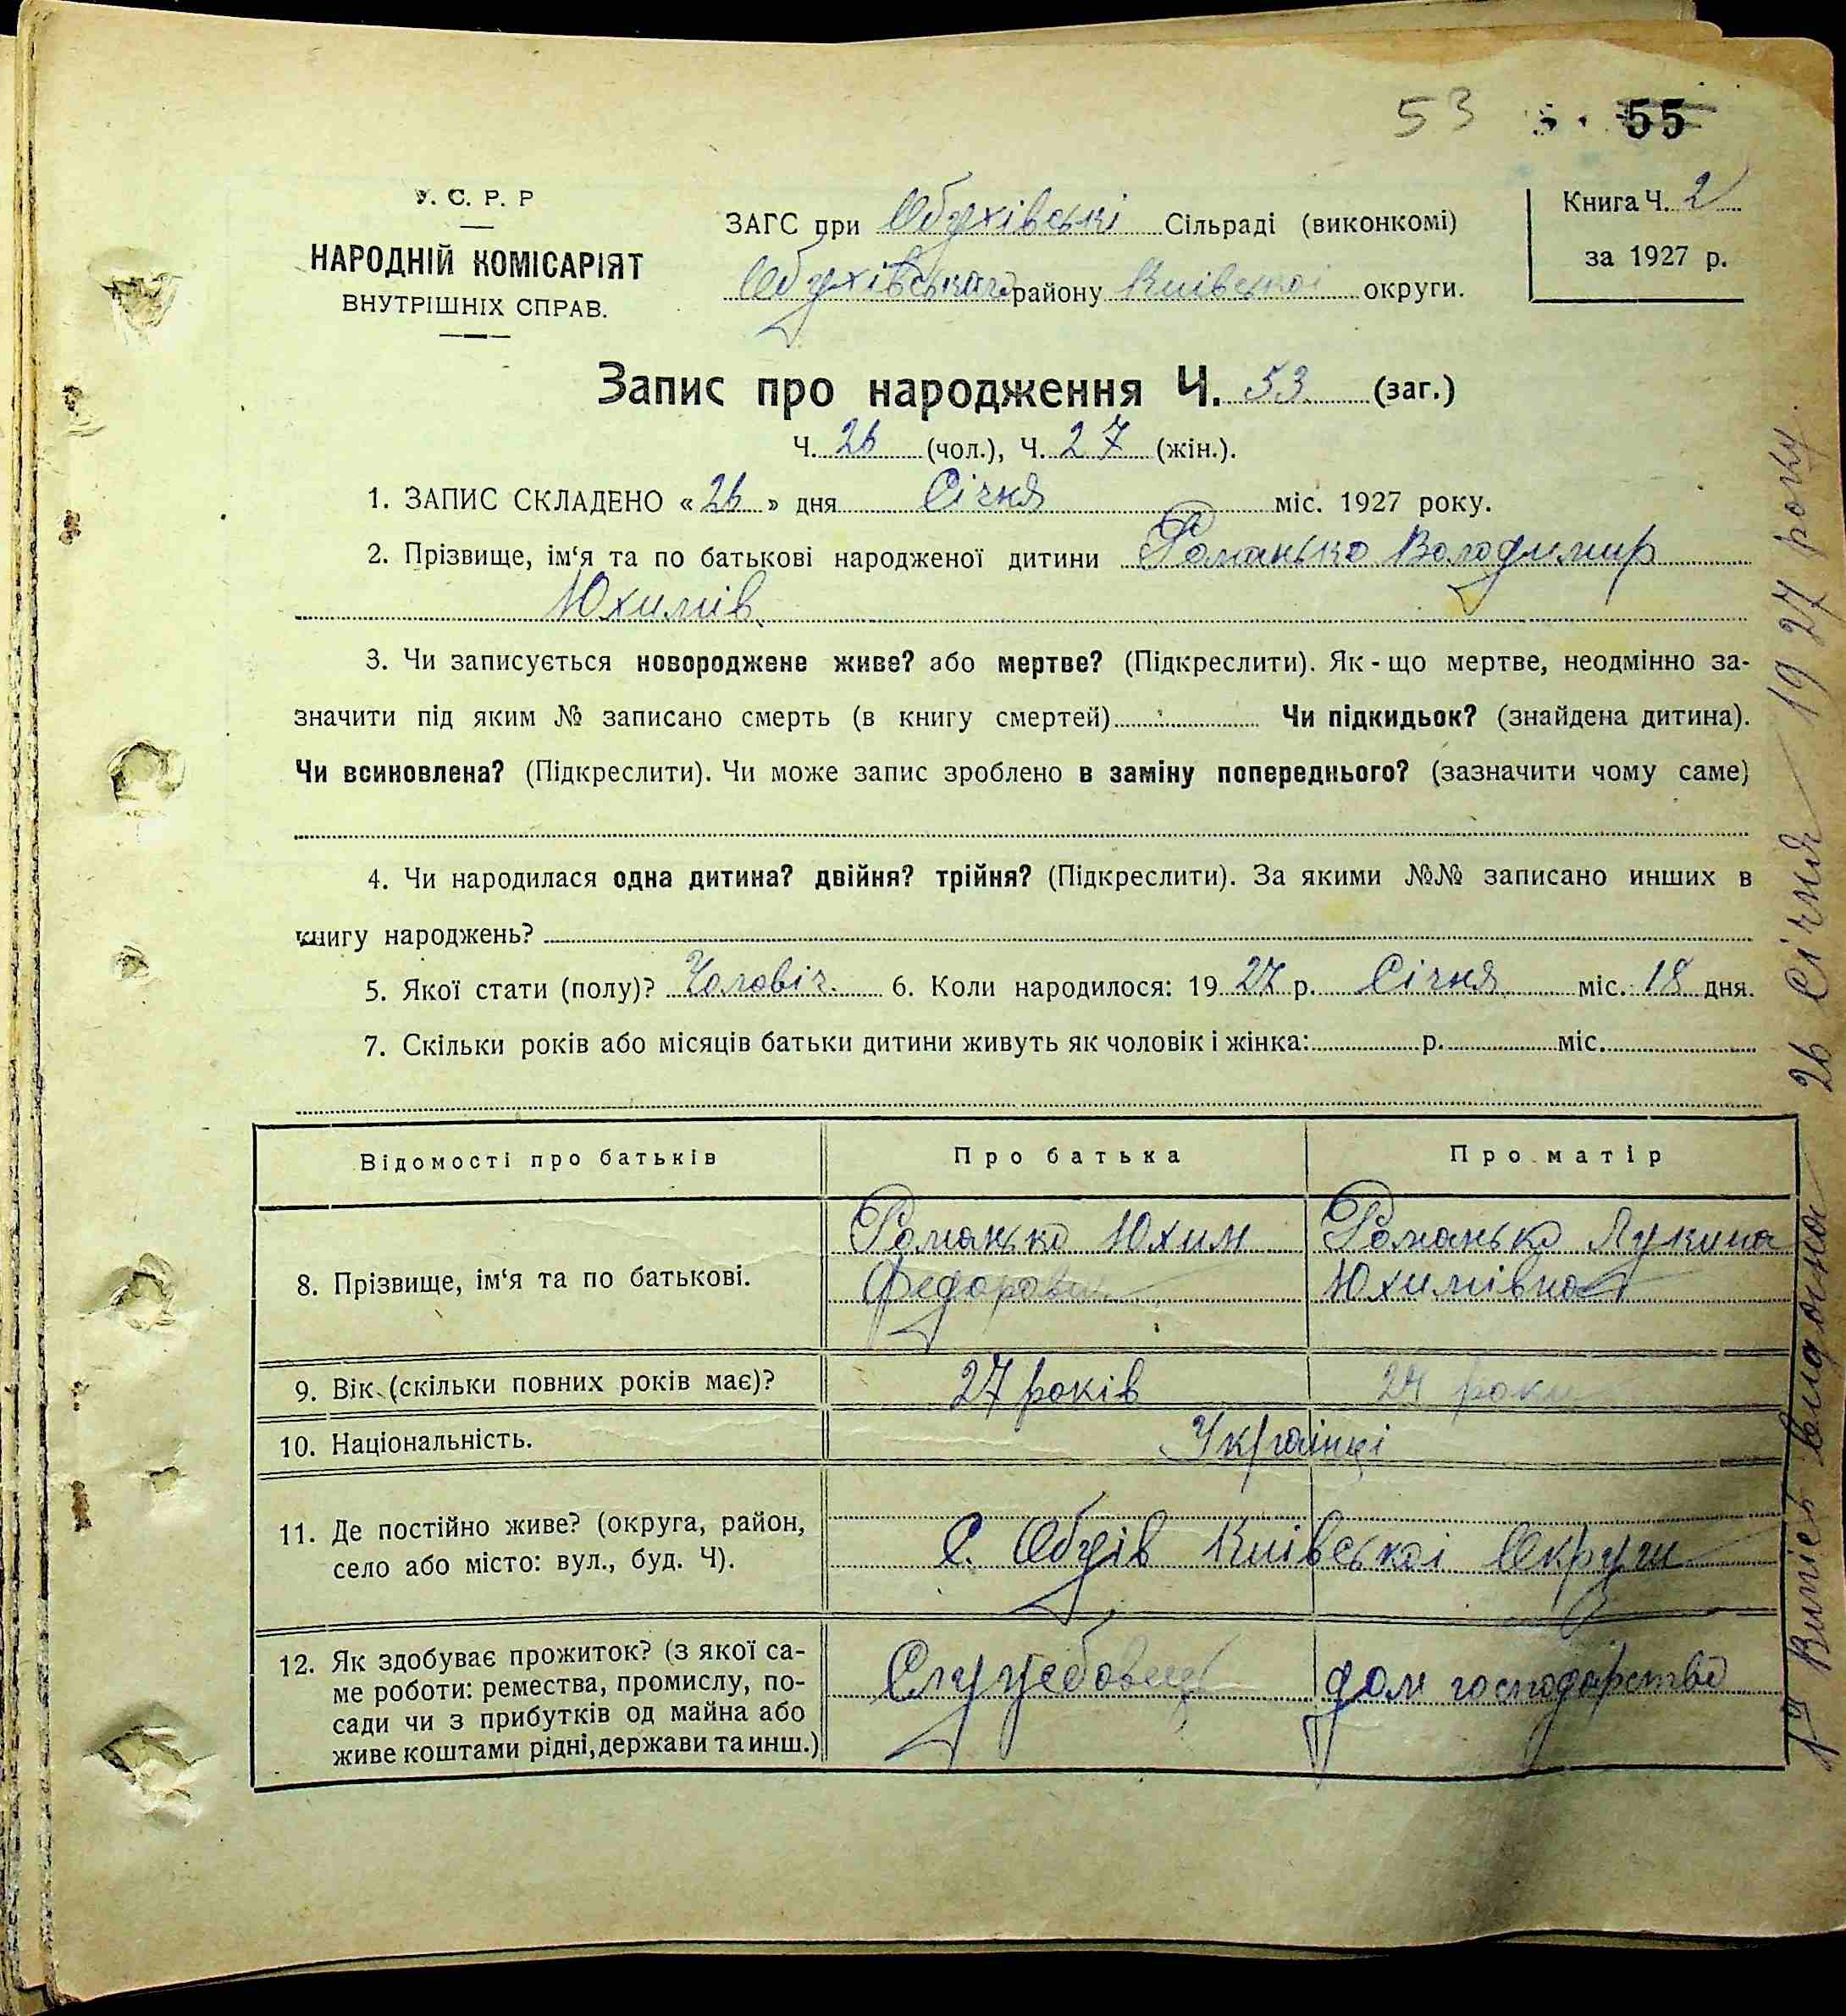 53 55
У. С. Р. Р
НАРОДНІЙ КОМІСАРІЯТ
ВНУТРІШНІХ СПРАВ.
ЗАГС при Обухівські Сільраді (виконкомі)
Обухівського району Київської округи.
Книга Ч. 2
за 1927 р.
Запис про народження Ч. 53 (заг.)
Ч. 26 (чол.), Ч. 27 (жін.).
1. ЗАПИС СКЛАДЕНО « 26 » дня Січня міс. 1927 року.
2. Прізвище, ім‘я та по батькові народженої дитини Романько Володимир
Юхимів
3. Чи записується новороджене живе? або мертве? (Підкреслити). Як-що мертве, неодмінно за-
значити під яким № записано смерть (в книгу смертей) Чи підкидьок? (знайдена дитина).
Чи всиновлена? (Підкреслити). Чи може запис зроблено в заміну попереднього? (зазначити чому саме)
4. Чи народилася одна дитина? двійня? трійня? (Підкреслити). За якими №№ записано инших в
книгу народжень?
5. Якої стати (полу)? Чоловіч. 6. Коли народилося: 19 27 р. Січня міс. 18 дня.
7. Скільки років або місяців батьки дитини живуть як чоловік і жінка: р. міс.
Відомості про батьків Про батька Про матір
8. Прізвище, ім‘я та по батькові.
Романько Юхим
Федорович
Романько Лукина
Юхимівна
9. Вік (скільки повних років має)? 27 років 24 роки
10. Національність. Українці
11. Де постійно живе? (округа, район,
село або місто: вул., буд. Ч).
С. Київської Округи
12. Як здобуває прожиток? (з якої са-
ме роботи: ремества, промислу, по-
сади чи з прибутків од майна або
живе коштами рідні, держави та инш.)
Служебовець
дом господарство
Випись видана 26 Січня 1927 року.